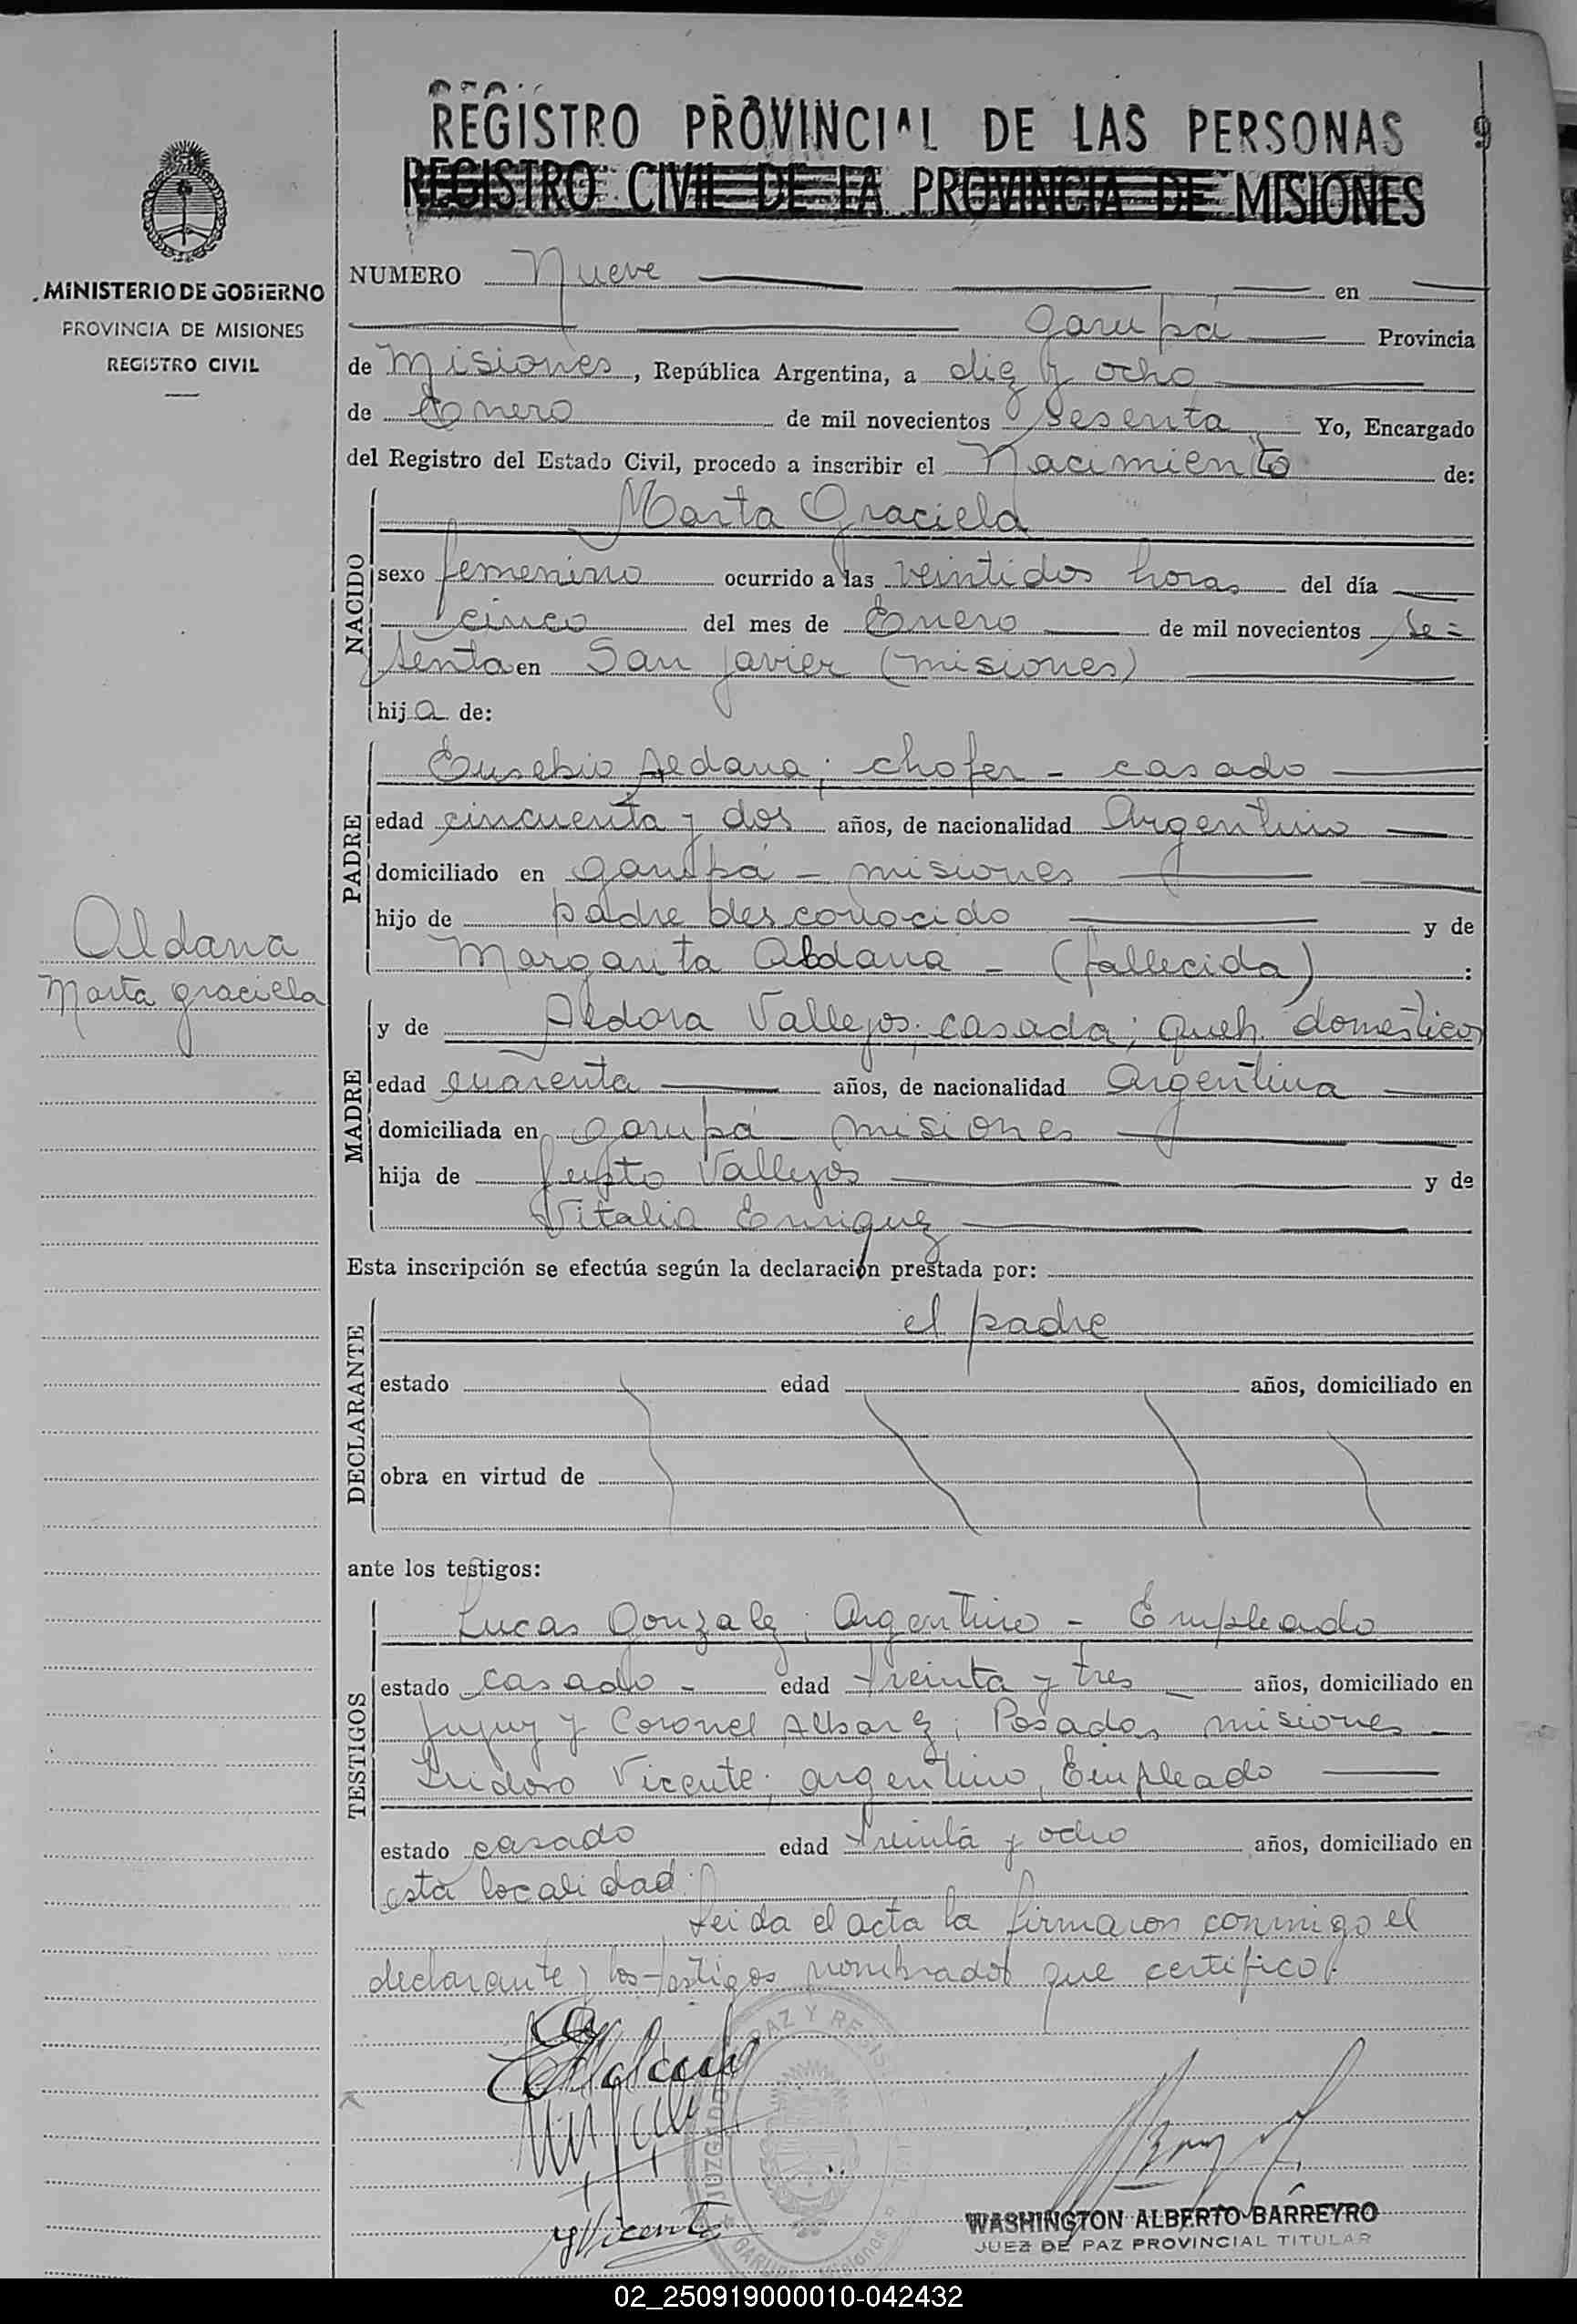 REGISTRO PROVINCIAL DE LAS PERSONAS
9
REGISTRO CIVIL DE LA PROVINCIA DE MISIONES
MINISTERIO DE GOBIERNO
PROVINCIA DE MISIONES
REGISTRO CIVIL
NUMERO Nueve en
Garupá Provincia
de Misiones, República Argentina, a diez y ocho
de Enero de mil novecientos sesenta Yo, Encargado
del Registro del Estado Civil, procedo a inscribir el Nacimiento de:
NACIDO
Marta Graciela
sexo femenino ocurrido a las veintidos horas del día
cinco del mes de Enero de mil novecientos se=
senta en San Javier (misiones)
hija de:
PADRE
Eusebio Aldana; chofer - casado
edad cincuenta y dos años, de nacionalidad Argentino
domiciliado en Garupá - misiones
hijo de padre desconocido y de
Margarita Aldana - (fallecida) :
Aldana
Marta Graciela
MADRE
y de Aldora Vallejos; casada; queh. domesticos
edad cuarenta años, de nacionalidad Argentina
domiciliada en Garupá - misiones
hija de Justo Vallejos y de
Vitalia Enriquez
Esta inscripción se efectúa según la declaración prestada por:
DECLARANTE
el padre
estado edad años, domiciliado en
obra en virtud de
ante los testigos:
TESTIGOS
Lucas Gonzalez; Argentino - Empleado
estado casado - edad treinta y tres años, domiciliado en
Jujuy y Coronel Alvarez; Posadas misiones -
Isidoro Vicente; argentino, Empleado
estado casado edad treinta y ocho años, domiciliado en
esta localidad.
Leida el acta la firmaron conmigo el
declarante y los testigos nombrados que certifico.
EAldana
Vicente
WASHINGTON ALBERTO BARREYRO
JUEZ DE PAZ PROVINCIAL TITULAR
02_250919000010-042432